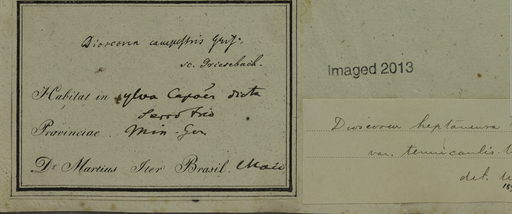 Dioscorea campestris Gris.
sc. Griesebach.
Habitat in sylva Capões dicta
Serro frio
Provinciae Min. Ger
Dr. Martius Iter Brasil. Maio
Imaged 2013
Dioscorea heptaneura
var. tenuicaulis
det.